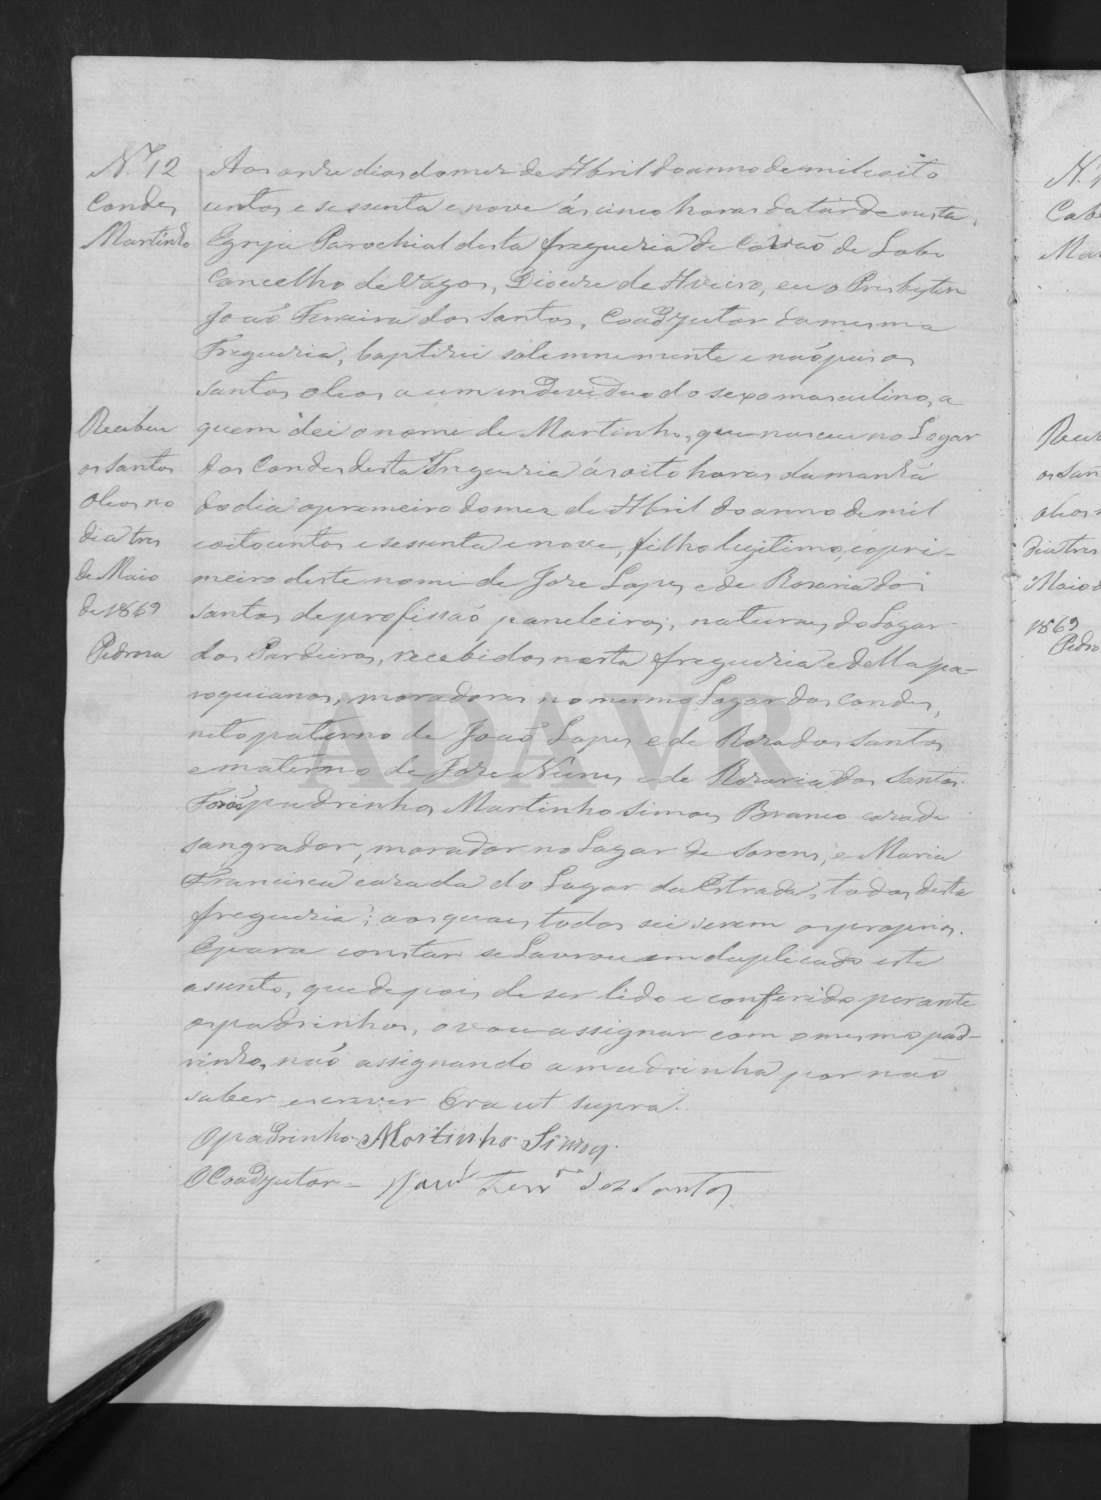 N.º 12
Condes
Martinho
Aos onze dias do mez de Abril do anno de mil oito
centos e sessenta e nove ás cinco horas da tarde nesta
Egreja Parochial desta freguezia de Covão de Lobo
Concelho de Vagos, Diocese de Aveiro, eu o Presbytero
João Ferreira dos Santos, Coadjutor da mesma
Freguezia, baptizei solemnemente e não puz os
santos oleos a um individuo do sexo masculino, a
quem dei o nome de Martinho, que nasceu no Logar
dos Condes desta Freguezia ás oito horas da manhã
do dia o primeiro do mez de Abril do anno de mil
oitocentos e sessenta e nove, filho legitimo, e o pri-
meiro deste nome de Joze Lopes e de Rosaria dos
santos de profissão paneleiros, naturaes do Logar
dos Pardeiros, recebidos nesta freguezia e della pa-
roquianos, moradores no mesmo Lugar dos Condes,
neto paterno de João Lopes e de Roza dos Santos
e materno de Joze Nunes e de Rosaria dos Santos.
Forão padrinhos Martinho Simoes Branco cazado
sangrador, morador no Lugar de e Maria
Francisca cazada do Lugar da Estrada, todos desta
freguezia; aos quaes todos sei serem os proprios.
E para constar se Lavrou em duplicado este
assento, que depois de ser lido e conferido perante
os padrinhos, o vou assignar com o mesmo pad-
rinho, não assignando a madrinha por não
saber escrever Era ut supra.
O padrinho Martinho Simoes
O Coadjutor – João Ferr.ra dos Santos
Recebeu
os santos
Oleos no
dia tres
de Maio
de 1869
Pedrosa
ADAVR
N.
Cab
Mar
Rece
os San
oleos n
dia tres
Maio d
1869
Pedro